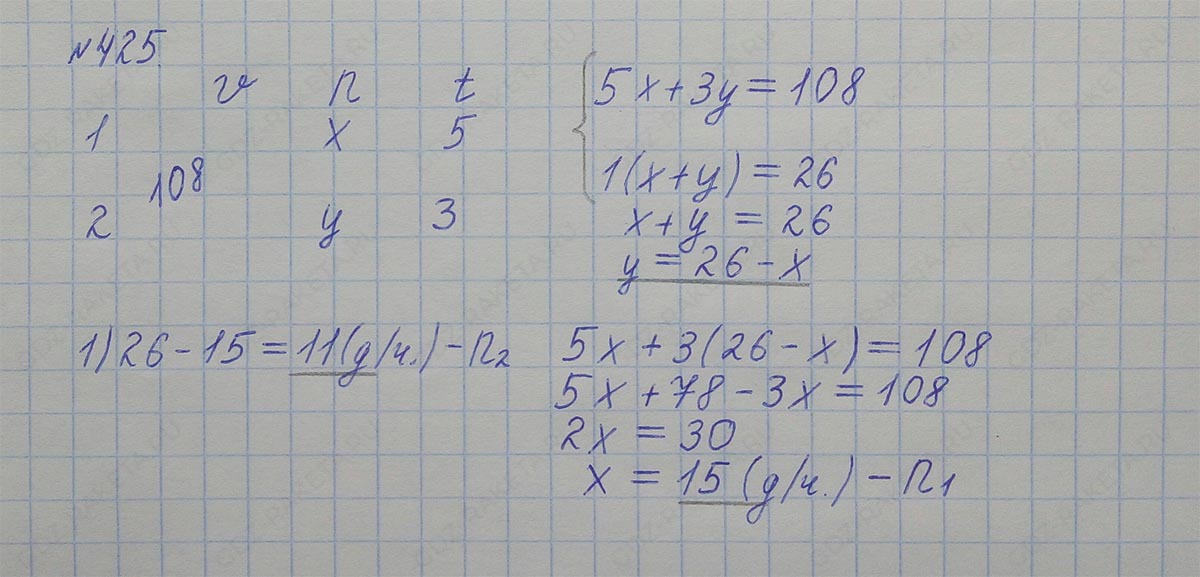 №425
v п t
1 x 5
108
2 y 3
5x+3y=108
1(x+y)=26
x+y=26
y=26-x
1) 26-15=11(д/ч.)-П2
5x+3(26-x)=108
5x+78-3x=108
2x=30
x=15(д/ч.)-П1